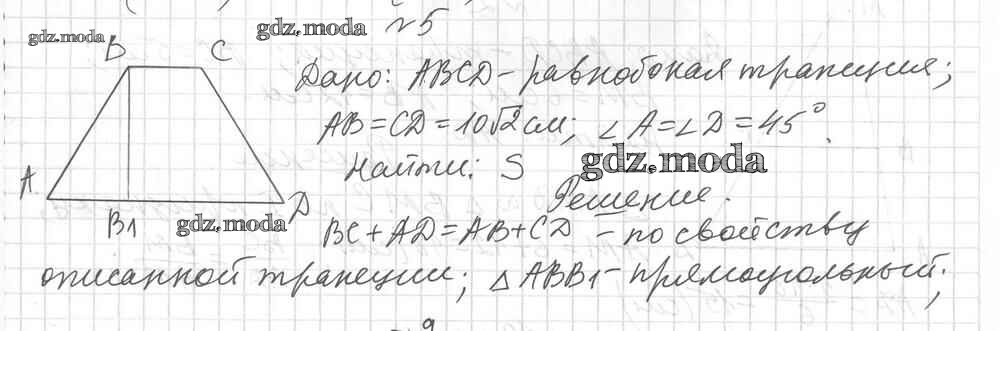 №5
gdz.moda
gdz.moda
B C
Дано: ABCD - равнобокая трапеция;
AB = CD = 10√2 см; ∠A = ∠D = 45°.
Найти: S
gdz.moda
A D
Решение.
B1
gdz.moda
BC + AD = AB + CD - по свойству
описанной трапеции; △ABB1 - прямоугольный;